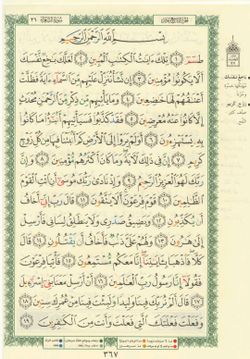 سُورَةُ الشُّعَرَاءِ ٢٦
بِسۡمِ ٱللَّهِ ٱلرَّحۡمَٰنِ ٱلرَّحِيمِ
طسٓمٓ ١ تِلۡكَ ءَايَٰتُ ٱلۡكِتَٰبِ ٱلۡمُبِينِ ٢ لَعَلَّكَ بَٰخِعٞ نَّفۡسَكَ
أَلَّا يَكُونُواْ مُؤۡمِنِينَ ٣ إِن نَّشَأۡ نُنَزِّلۡ عَلَيۡهِم مِّنَ ٱلسَّمَآءِ ءَايَةٗ فَظَلَّتۡ
أَعۡنَٰقُهُمۡ لَهَا خَٰضِعِينَ ٤ وَمَا يَأۡتِيهِم مِّن ذِكۡرٖ مِّنَ ٱلرَّحۡمَٰنِ مُحۡدَثٍ
إِلَّا كَانُواْ عَنۡهُ مُعۡرِضِينَ ٥ فَقَدۡ كَذَّبُواْ فَسَيَأۡتِيهِمۡ أَنۢبَٰٓؤُاْ مَا كَانُواْ
بِهِۦ يَسۡتَهۡزِءُونَ ٦ أَوَلَمۡ يَرَوۡاْ إِلَى ٱلۡأَرۡضِ كَمۡ أَنۢبَتۡنَا فِيهَا مِن كُلِّ زَوۡجٖ
كَرِيمٍ ٧ إِنَّ فِي ذَٰلِكَ لَأٓيَةٗۖ وَمَا كَانَ أَكۡثَرُهُم مُّؤۡمِنِينَ ٨ وَإِنَّ
رَبَّكَ لَهُوَ ٱلۡعَزِيزُ ٱلرَّحِيمُ ٩ وَإِذۡ نَادَىٰ رَبُّكَ مُوسَىٰٓ أَنِ ٱئۡتِ ٱلۡقَوۡمَ
ٱلظَّٰلِمِينَ ١٠ قَوۡمَ فِرۡعَوۡنَۚ أَلَا يَتَّقُونَ ١١ قَالَ رَبِّ إِنِّيٓ أَخَافُ
أَن يُكَذِّبُونِ ١٢ وَيَضِيقُ صَدۡرِي وَلَا يَنطَلِقُ لِسَانِي فَأَرۡسِلۡ
إِلَىٰ هَٰرُونَ ١٣ وَلَهُمۡ عَلَيَّ ذَنۢبٞ فَأَخَافُ أَن يَقۡتُلُونِ ١٤ قَالَ
كَلَّاۖ فَٱذۡهَبَا بِـَٔايَٰتِنَآۖ إِنَّا مَعَكُم مُّسۡتَمِعُونَ ١٥ فَأۡتِيَا فِرۡعَوۡنَ
فَقُولَآ إِنَّا رَسُولُ رَبِّ ٱلۡعَٰلَمِينَ ١٦ أَنۡ أَرۡسِلۡ مَعَنَا بَنِيٓ إِسۡرَٰٓءِيلَ ١٧
قَالَ أَلَمۡ نُرَبِّكَ فِينَا وَلِيدٗا وَلَبِثۡتَ فِينَا مِنۡ عُمُرِكَ سِنِينَ ١٨
وَفَعَلۡتَ فَعۡلَتَكَ ٱلَّتِي فَعَلۡتَ وَأَنتَ مِنَ ٱلۡكَٰفِرِينَ ١٩
٣٦٧